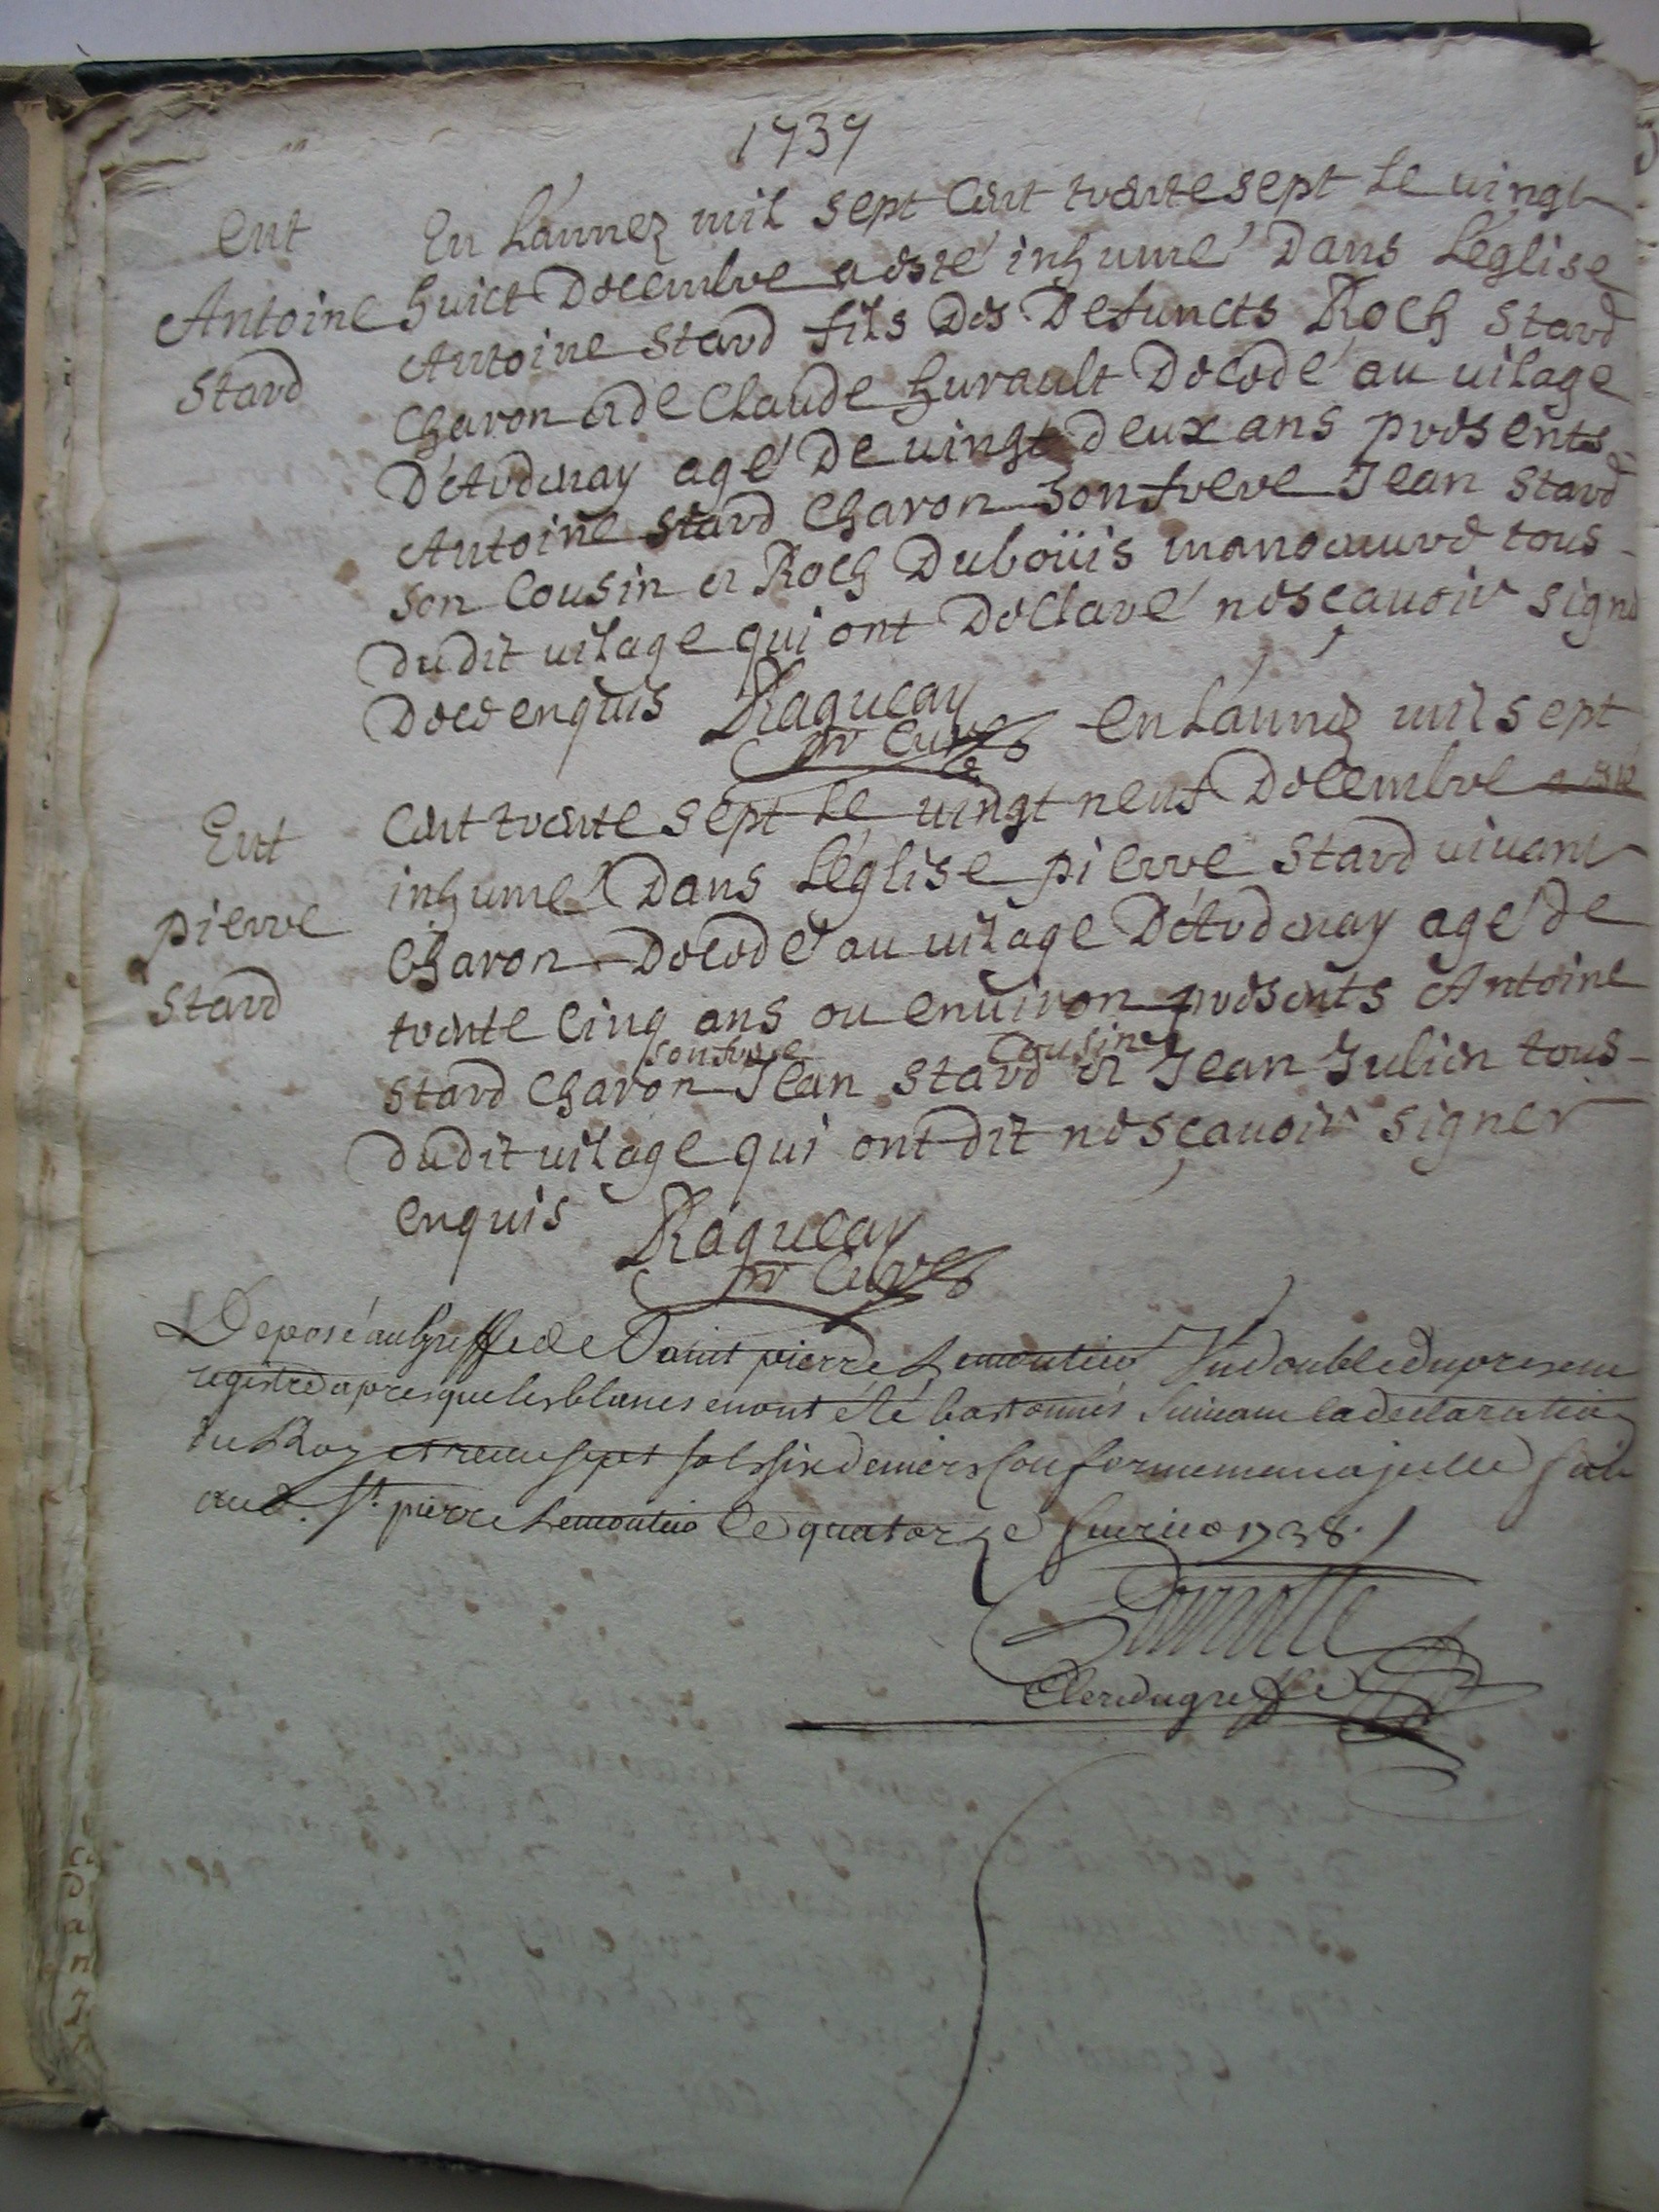 1737
ent
Antoine
Stard
En L'annez mil sept Cent trente sept Le vingt
huict Decembre a esté inhumé Dans L'eglise
Antoine Stard fils Des Defuncts Roch Stard
Charon et de Claude hurault Decedé au vilage
D'Ardenay agé De vingt deux ans presents
Antoine Stard Charon son frere Jean Stard
son Cousin et Roch Duboüis manoeuvre tous
dudit vilage qui ont Declaré ne sçavoir signe
De ce enquis Ragueau
pr Curé
En L'annéz mil sept
Ent
pierre
Stard
Cent trente sept Le vingt neuf Decembre a esté
inhumé Dans L'eglise pierre Stard vivant
Charon Decedé au vilage D'Ardenay agé de
trente Cinq ans ou environ presents Antoine
son frere Cousin
Stard Charon Jean Stard et Jean Julien tous
dudit vilage qui ont dit ne sçavoir signer
enquis Ragueau
pr Curé
Deposé au Greffe de Saint pierre Lemoutier Un double du present
registre apres que les blancs en ont été bastonnés Suivant la declaration
du Roy et receu sept sols six deniers Conformement a jcelle fait
aud. St. pierre Lemoutier Le quatorze fuerier 1738.
Clerc du greffe